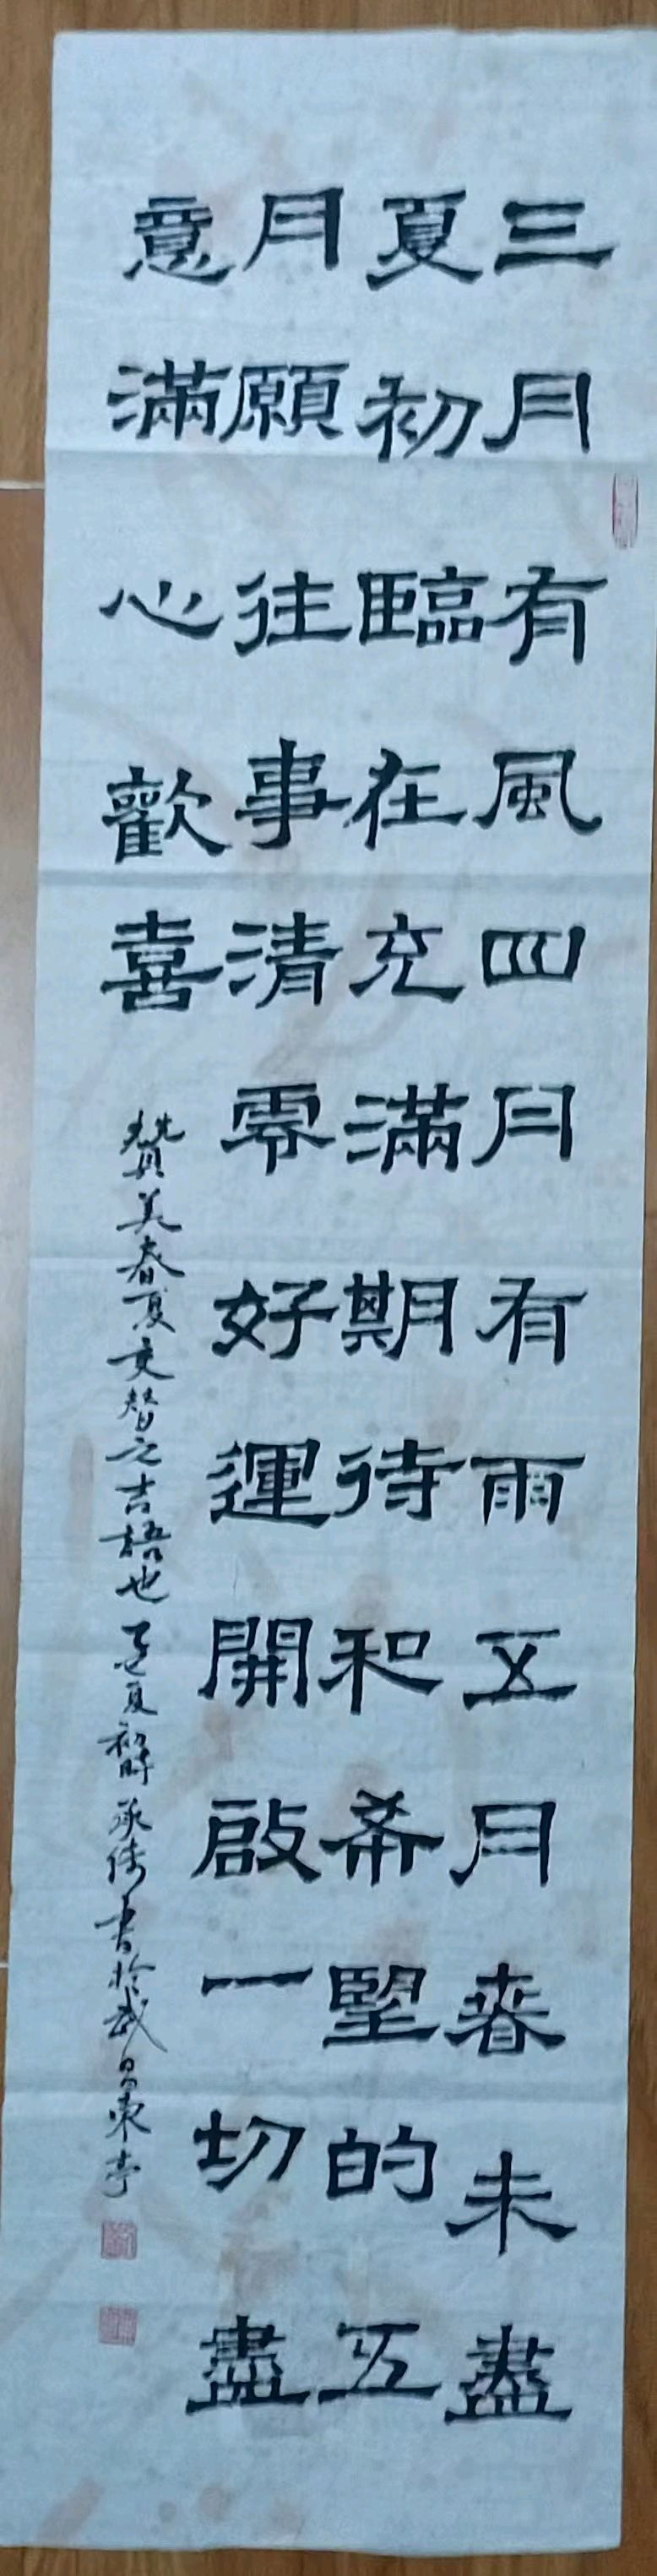 三月有風四月有雨五月春未盡
夏初臨在充滿期待和希望的五
月願往事清零好運開啟一切盡
意滿心歡喜
贊美春夏交替之吉語也 夏初時承傳書於武昌東亭